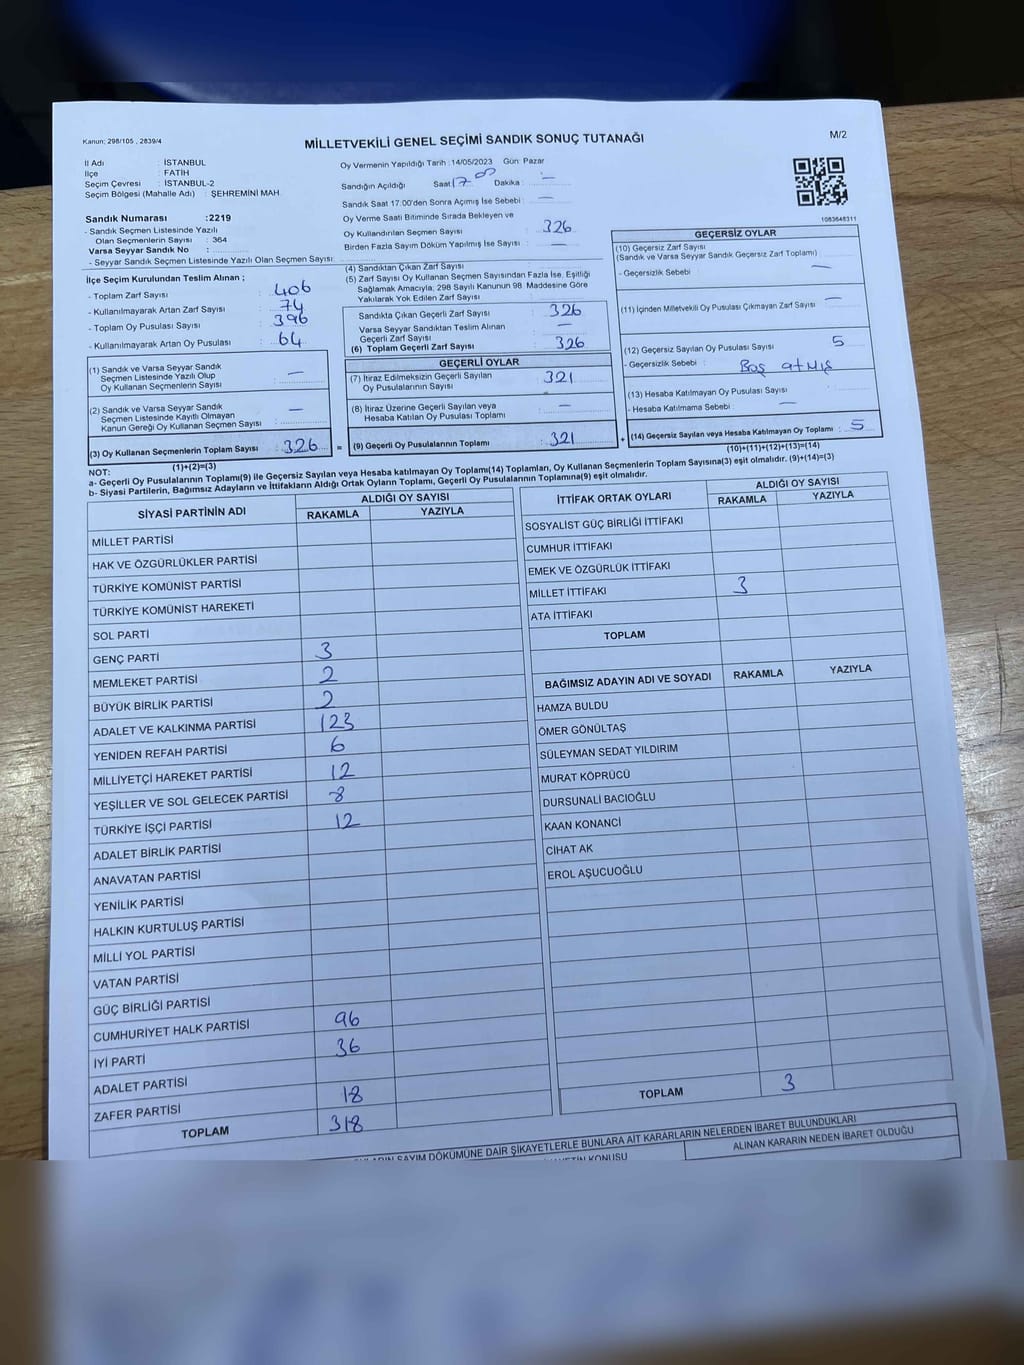 Kanun: 298/105 , 2839/4
MİLLETVEKİLİ GENEL SEÇİMİ SANDIK SONUÇ TUTANAĞI
M/2
İl Adı : İSTANBUL
İlçe : FATİH
Seçim Çevresi : İSTANBUL-2
Seçim Bölgesi (Mahalle Adı) : ŞEHREMİNİ MAH.
Sandık Numarası :2219
- Sandık Seçmen Listesinde Yazılı
Olan Seçmenlerin Sayısı : 364
Varsa Seyyar Sandık No :
- Seyyar Sandık Seçmen Listesinde Yazılı Olan Seçmen Sayısı:
Oy Vermenin Yapıldığı Tarih : 14/05/2023 Gün: Pazar
Sandığın Açıldığı Saat : 17.00 Dakika : —
Sandık Saat 17.00'den Sonra Açılmış İse Sebebi : —
Oy Verme Saati Bitiminde Sırada Bekleyen ve
Oy Kullandırılan Seçmen Sayısı : 326
Birden Fazla Sayım Döküm Yapılmış İse Sayısı : —
1083648311
İlçe Seçim Kurulundan Teslim Alınan ;
- Toplam Zarf Sayısı : 406
- Kullanılmayarak Artan Zarf Sayısı : 74
- Toplam Oy Pusulası Sayısı : 396
- Kullanılmayarak Artan Oy Pusulası : 64
(1) Sandık ve Varsa Seyyar Sandık
Seçmen Listesinde Yazılı Olup
Oy Kullanan Seçmenlerin Sayısı : —
(2) Sandık ve Varsa Seyyar Sandık
Seçmen Listesinde Kayıtlı Olmayan
Kanun Gereği Oy Kullanan Seçmen Sayısı : —
(3) Oy Kullanan Seçmenlerin Toplam Sayısı : 326
(1)+(2)=(3)
(4) Sandıktan Çıkan Zarf Sayısı
(5) Zarf Sayısı Oy Kullanan Seçmen Sayısından Fazla İse, Eşitliği
Sağlamak Amacıyla; 298 Sayılı Kanunun 98. Maddesine Göre
Yakılarak Yok Edilen Zarf Sayısı :
Sandıkta Çıkan Geçerli Zarf Sayısı : 326
Varsa Seyyar Sandıktan Teslim Alınan
Geçerli Zarf Sayısı : —
(6) Toplam Geçerli Zarf Sayısı : 326
GEÇERLİ OYLAR
(7) İtiraz Edilmeksizin Geçerli Sayılan
Oy Pusulalarının Sayısı : 321
(8) İtiraz Üzerine Geçerli Sayılan veya
Hesaba Katılan Oy Pusulası Toplamı : —
= (9) Geçerli Oy Pusulalarının Toplamı : 321
GEÇERSİZ OYLAR
(10) Geçersiz Zarf Sayısı
(Sandık ve Varsa Seyyar Sandık Geçersiz Zarf Toplamı) :
- Geçersizlik Sebebi : —
(11) İçinden Milletvekili Oy Pusulası Çıkmayan Zarf Sayısı : —
(12) Geçersiz Sayılan Oy Pusulası Sayısı : 5
- Geçersizlik Sebebi : Boş atmış
(13) Hesaba Katılmayan Oy Pusulası Sayısı :
- Hesaba Katılmama Sebebi : —
+ (14) Geçersiz Sayılan veya Hesaba Katılmayan Oy Toplamı : 5
(10)+(11)+(12)+(13)=(14)
NOT:
a- Geçerli Oy Pusulalarının Toplamı(9) ile Geçersiz Sayılan veya Hesaba katılmayan Oy Toplamı(14) Toplamları, Oy Kullanan Seçmenlerin Toplam Sayısına(3) eşit olmalıdır. (9)+(14)=(3)
b- Siyasi Partilerin, Bağımsız Adayların ve İttifakların Aldığı Ortak Oyların Toplamı, Geçerli Oy Pusulalarının Toplamına(9) eşit olmalıdır.
SİYASİ PARTİNİN ADI ALDIĞI OY SAYISI
RAKAMLA YAZIYLA
MİLLET PARTİSİ
HAK VE ÖZGÜRLÜKLER PARTİSİ
TÜRKİYE KOMÜNİST PARTİSİ
TÜRKİYE KOMÜNİST HAREKETİ
SOL PARTİ
GENÇ PARTİ 3
MEMLEKET PARTİSİ 2
BÜYÜK BİRLİK PARTİSİ 2
ADALET VE KALKINMA PARTİSİ 123
YENİDEN REFAH PARTİSİ 6
MİLLİYETÇİ HAREKET PARTİSİ 12
YEŞİLLER VE SOL GELECEK PARTİSİ 8
TÜRKİYE İŞÇİ PARTİSİ 12
ADALET BİRLİK PARTİSİ
ANAVATAN PARTİSİ
YENİLİK PARTİSİ
HALKIN KURTULUŞ PARTİSİ
MİLLİ YOL PARTİSİ
VATAN PARTİSİ
GÜÇ BİRLİĞİ PARTİSİ
CUMHURİYET HALK PARTİSİ 96
İYİ PARTİ 36
ADALET PARTİSİ
ZAFER PARTİSİ 18
TOPLAM 318
İTTİFAK ORTAK OYLARI ALDIĞI OY SAYISI
RAKAMLA YAZIYLA
SOSYALİST GÜÇ BİRLİĞİ İTTİFAKI
CUMHUR İTTİFAKI
EMEK VE ÖZGÜRLÜK İTTİFAKI
MİLLET İTTİFAKI 3
ATA İTTİFAKI
TOPLAM
BAĞIMSIZ ADAYIN ADI VE SOYADI RAKAMLA YAZIYLA
HAMZA BULDU
ÖMER GÖNÜLTAŞ
SÜLEYMAN SEDAT YILDIRIM
MURAT KÖPRÜCÜ
DURSUNALİ BACIOĞLU
KAAN KONANCİ
CİHAT AK
EROL AŞUCUOĞLU
TOPLAM 3
SAYIM DÖKÜMÜNE DAİR ŞİKAYETLERLE BUNLARA AİT KARARLARIN NELERDEN İBARET BULUNDUKLARI
KONUSU
ALINAN KARARIN NEDEN İBARET OLDUĞU